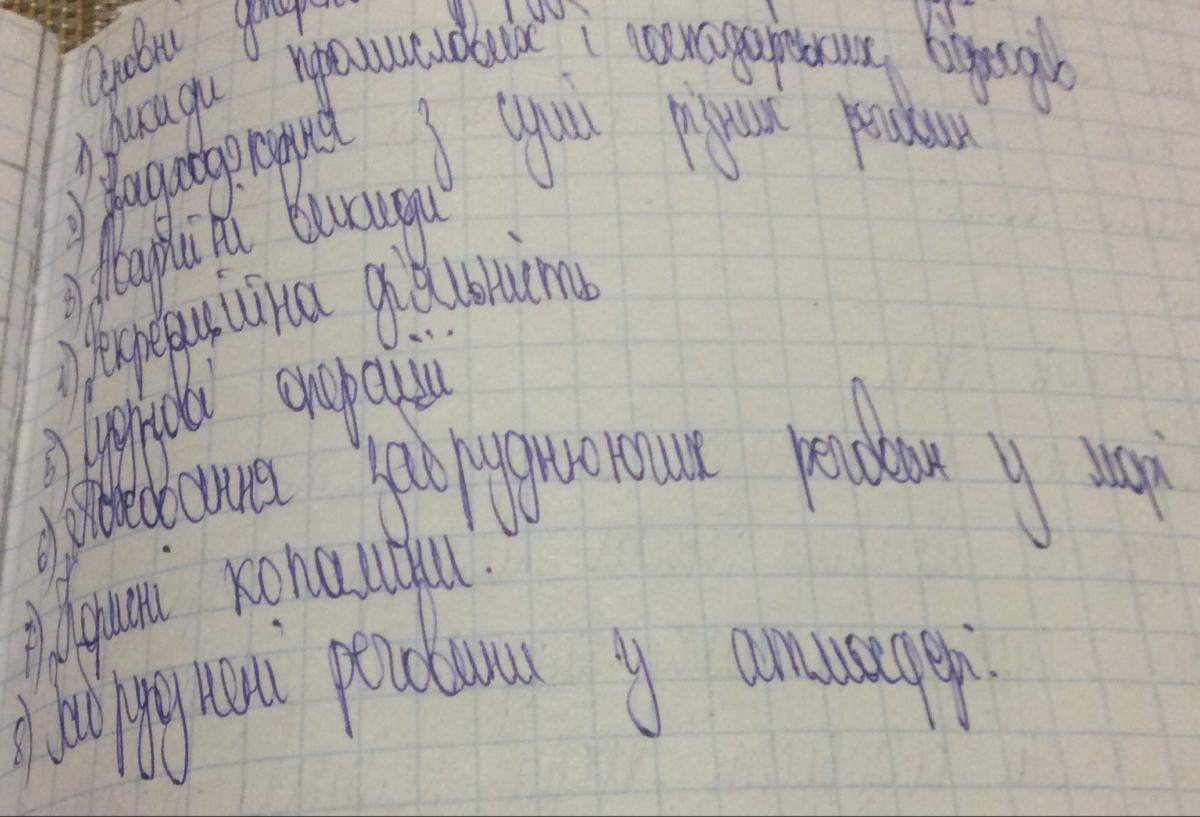 Основні джерела
1) Викиди промислових і господарських відходів
2) Надходження з суші різних речовин
3) Аварійні викиди
4) Рекреаційна діяльність
5) Суднові операції
6) Поховання забруднюючих речовин у морі
7) Корисні копалини.
8) Забруднені речовини у атмосфері.